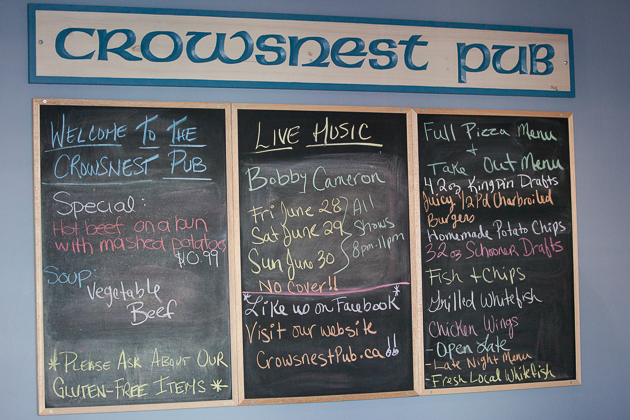 CROWSNEST PUB
WELCOME TO THE
CROWSNEST PUB
Special:
Hot beef on a bun
with mashed potatoes
$10.99
Soup:
Vegetable
Beef
*PLEASE ASK ABOUT OUR
GLUTEN-FREE ITEMS*
LIVE MUSIC
Bobby Cameron
Fri June 28
Sat June 29
Sun June 30
All
Shows
8pm-11pm
No Cover!!
*Like us on Facebook*
Visit our website
CrowsnestPub.ca!!
Full Pizza Menu
+
Take Out Menu
42oz Kingpin Drafts
Juicy 1/2Pd Charbroiled
Burgers
Homemade Potato Chips
32oz Schooner Drafts
Fish + Chips
Grilled Whitefish
Chicken Wings
- Open Late
- Late Night Menu
- Fresh Local Whitefish